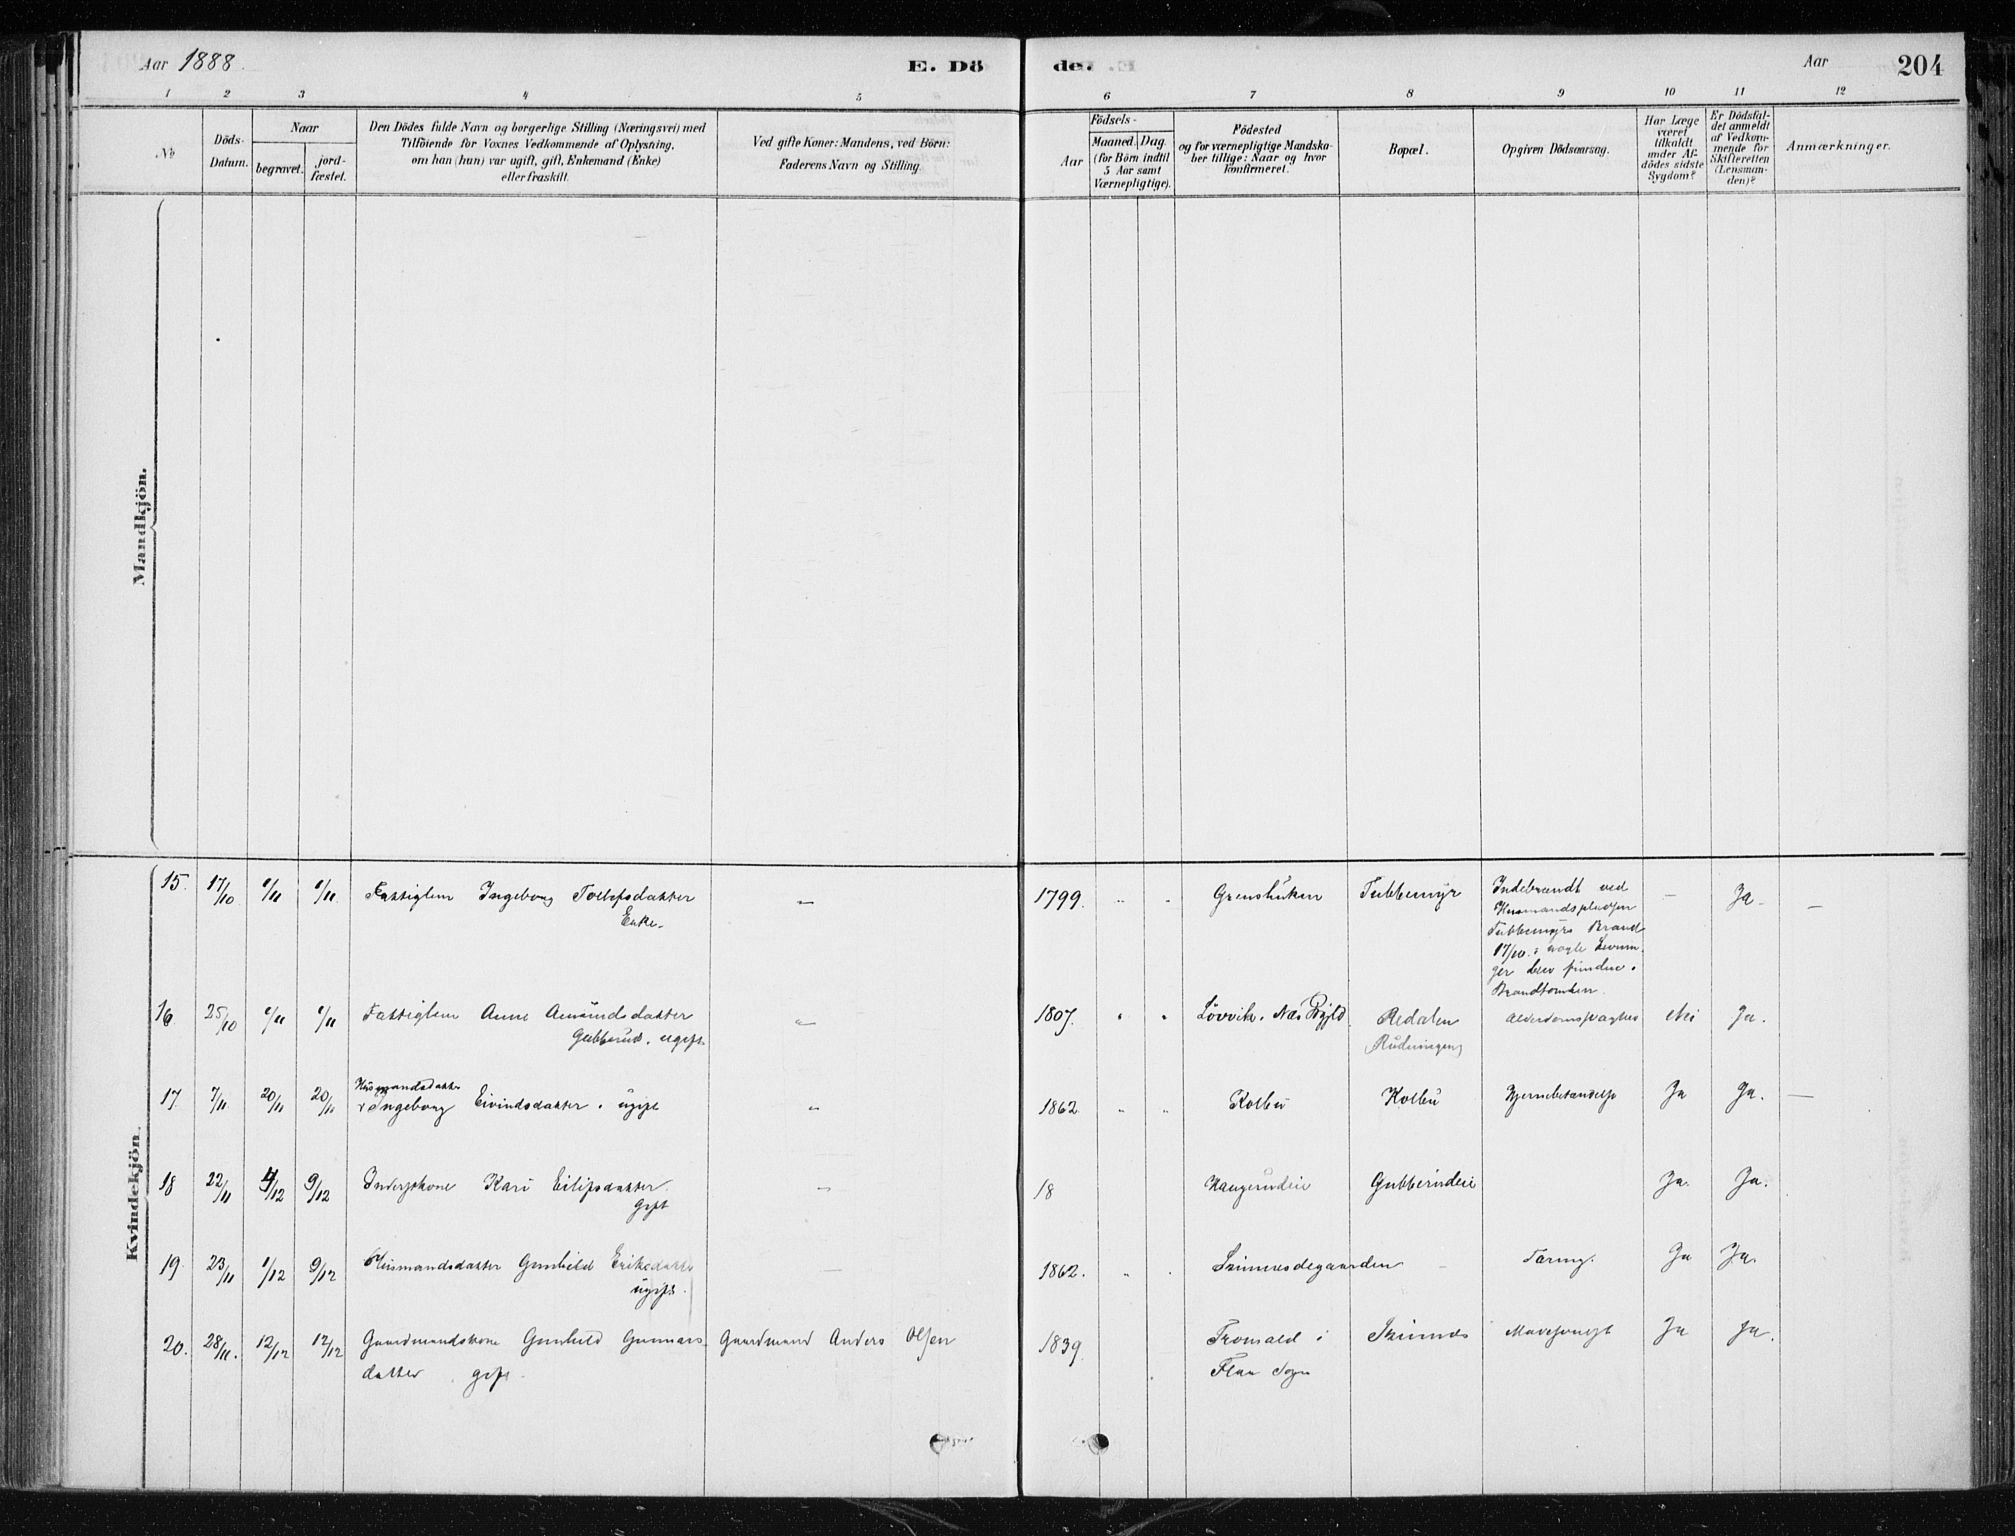 Aar 1888.
E. Döde.
Aar
204
1 2 3 4 5 6 7 8 9 10 11 12
No
Döds-
Datum.
Naar
begravet.
jord-
fæstet.
Den Dödes fulde Navn og borgerlige Stilling (Næringsvei) med
Tilföiende for Voxnes Vedkommende af Oplysning,
om han (hun) var ugift, gift, Enkemand (Enke)
eller fraskilt.
Ved gifte Koner: Mandens, ved Börn:
Faderens Navn og Stilling.
Födsels-
Aar
Maaned. Dag.
(for Börn indtil
5 Aar samt
Værnepligtige).
Födested
og for værnepligtige Mandska-
ber tillige: Naar og hvor
konfirmeret.
Bopæl.
Opgiven Dödsaarsag.
Har Læge
været
tilkaldt
under Af-
dödes sidste
Sygdom?
Er Dödsfal-
det anmeldt
af Vedkom-
mende for
Skifteretten
(Lensman-
den)?
Anmærkninger.
Mandkjön.
Kvindekjön.
15. 17/10 1/11 1/11 Fattiglem Ingeborg Tollefsdatter — 1799. " " Tubbemyr — Ja. —
Enke.
Indebrændt ved
Husmandspladsen
Tubbemyrs Brand
17/10.
Brandtomten.
16. 25/10 1/11 1/11 Fattiglem Anne Amundsdatter " 1807. " " Lövvik, Næs Alderdomssvaghed Nei Ja.
Gubberud. ugift
Redalen
17. 7/11 20/11 20/11 Husmandsdatter
Ingeborg Eivindsdatter. ugift " 1862 " " Kolbu Kolbu Hjernebetændelse Ja Ja. —
18 22/11 4/12 9/12 Inderstkone Kari Eilifsdatter. — 18 Haugerudeie Gubberudeie Ja. Ja.
Gift
19. 23/11 1/12 9/12 Husmandsdatter Gunhild Eriksdatter — 1862. " . – Tæring. Ja Ja.
ugift.
20. 28/11. 12/12 12/12 Gaardmandskone Gunhild Gunnars- Gaardmand Anders Olsen 1839. Tromald i Mavesvulst Ja Ja.
datter. gift. Flaa Sogn